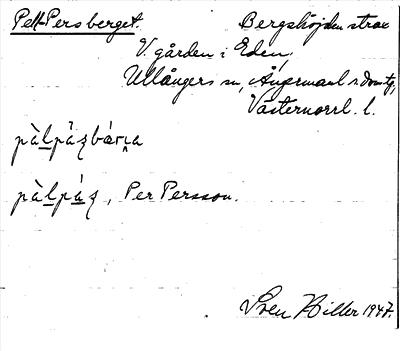 Pell-Persberget. Bergshöjden strax
V. gården i Eden,
Ullångers sn, Ångermanl. s. domsg,
Västernorrl. l.
pàlpàzbárıa
pàlpáz, Per Persson.
Sven Hiller 1947.